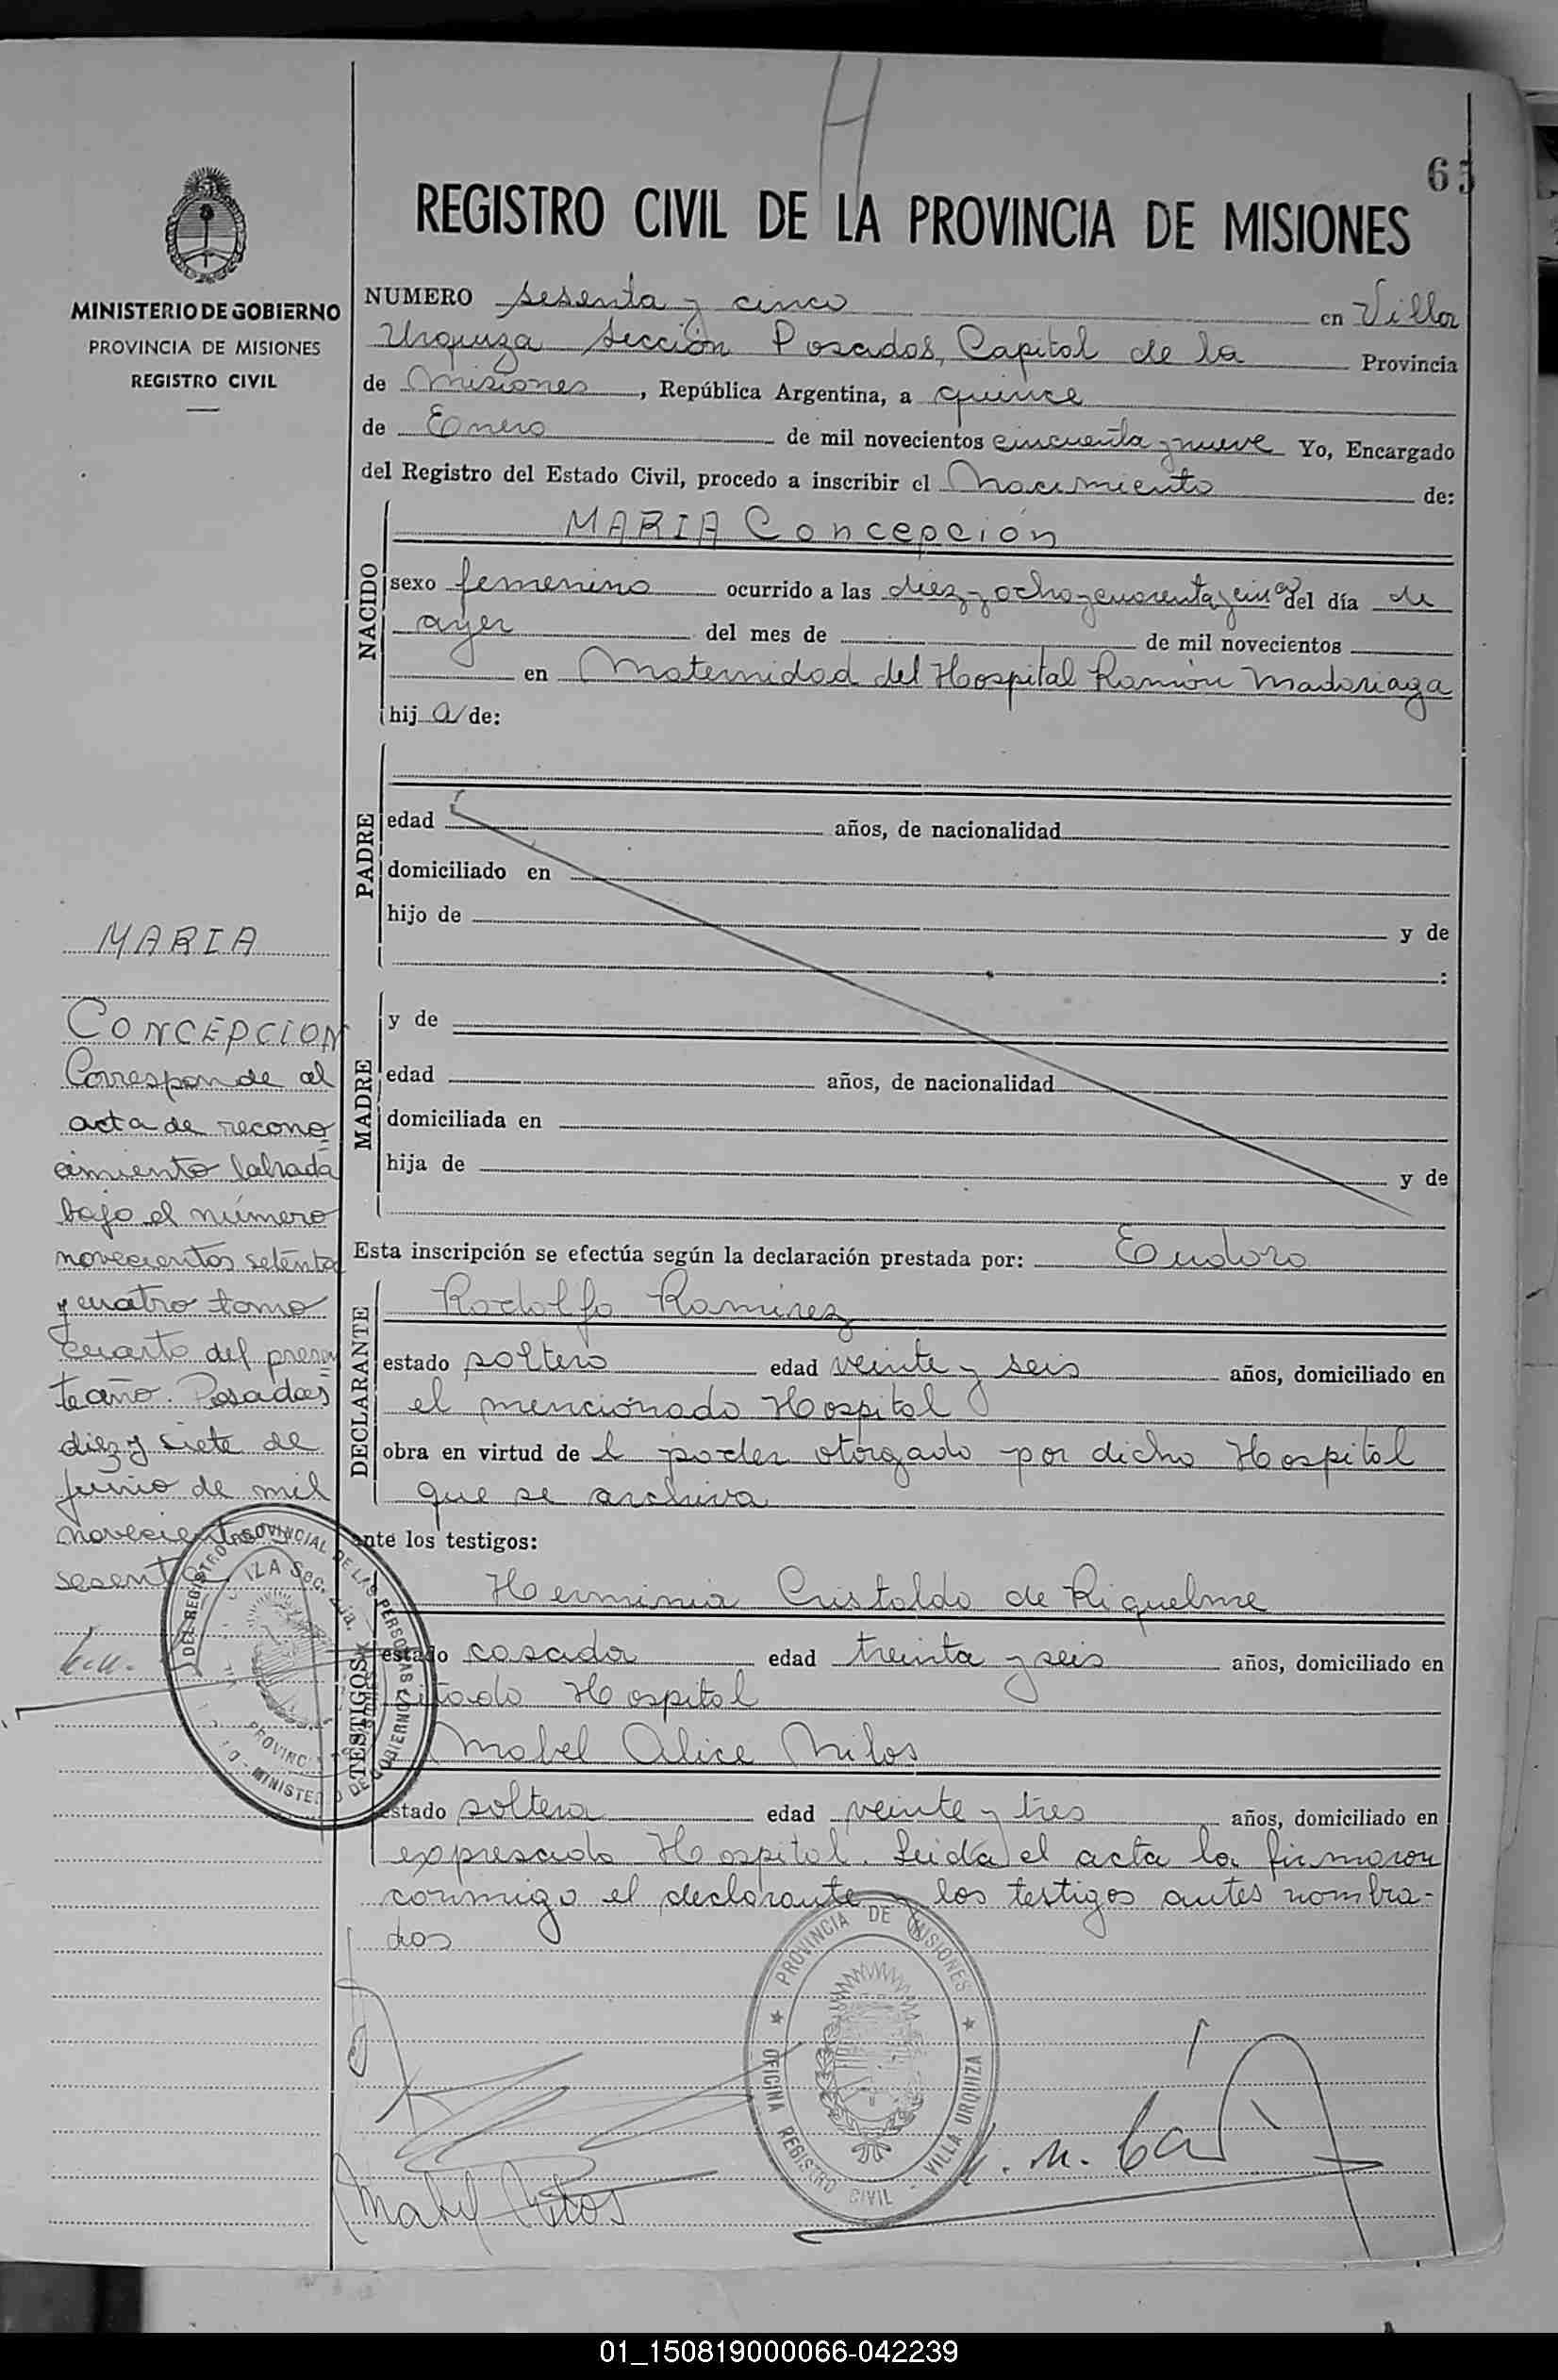 H
65
REGISTRO CIVIL DE LA PROVINCIA DE MISIONES
MINISTERIO DE GOBIERNO
PROVINCIA DE MISIONES
REGISTRO CIVIL
NUMERO sesenta y cinco en Villa
Urquiza Sección Posadas, Capital de la Provincia
de Misiones, República Argentina, a quince
de Enero de mil novecientos cincuenta y nueve Yo, Encargado
del Registro del Estado Civil, procedo a inscribir el Nacimiento de:
NACIDO
MARIA Concepción
sexo femenino ocurrido a las diez y ocho y cuarenta y cinco del día de
ayer del mes de de mil novecientos
en Maternidad del Hospital Ramón Madariaga
hij a de:
PADRE
edad años, de nacionalidad
domiciliado en
hijo de y de
:
MADRE
y de
edad años, de nacionalidad
domiciliada en
hija de y de
Esta inscripción se efectúa según la declaración prestada por: Eudoro
DECLARANTE
Rodolfo Ramirez
estado soltero edad veinte y seis años, domiciliado en
el mencionado Hospital
obra en virtud de l poder otorgado por dicho Hospital
que se archiva
ante los testigos:
TESTIGOS
Herminia Cristaldo de Riquelme
estado casada edad treinta y seis años, domiciliado en
citado Hospital
Mabel Alice
estado soltera edad veinte y tres años, domiciliado en
expresado Hospital. Leida el acta la firmaron
conmigo el declarante y los testigos antes nombra-
dos
MARIA
CONCEPCION
Corresponde al
acta de recono
cimiento labrada
bajo el número
novecientos setenta
y cuatro tomo
cuarto del presen
te año. Posadas
diez y siete de
junio de mil
novecientos
sesenta
PROVINCIA DE MISIONES
OFICINA REGISTRO CIVIL - VILLA URQUIZA
Mabel
01_150819000066-042239